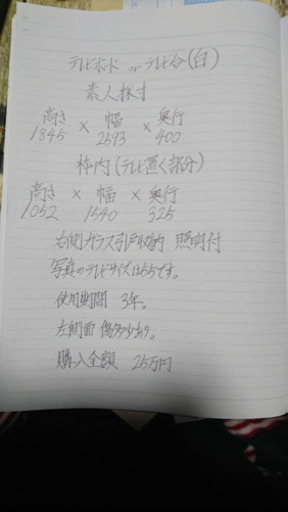 テレビボード or テレビ台(白)
素人採寸
高さ × 幅 × 奥行
1845 2593 400
枠内(テレビ置く部分)
高さ × 幅 × 奥行
1052 1540 325
右側ガラス引戸収納 照明付
写真のテレビサイズは55です。
使用期間 3年。
左側面 傷多少あり。
購入金額 25万円